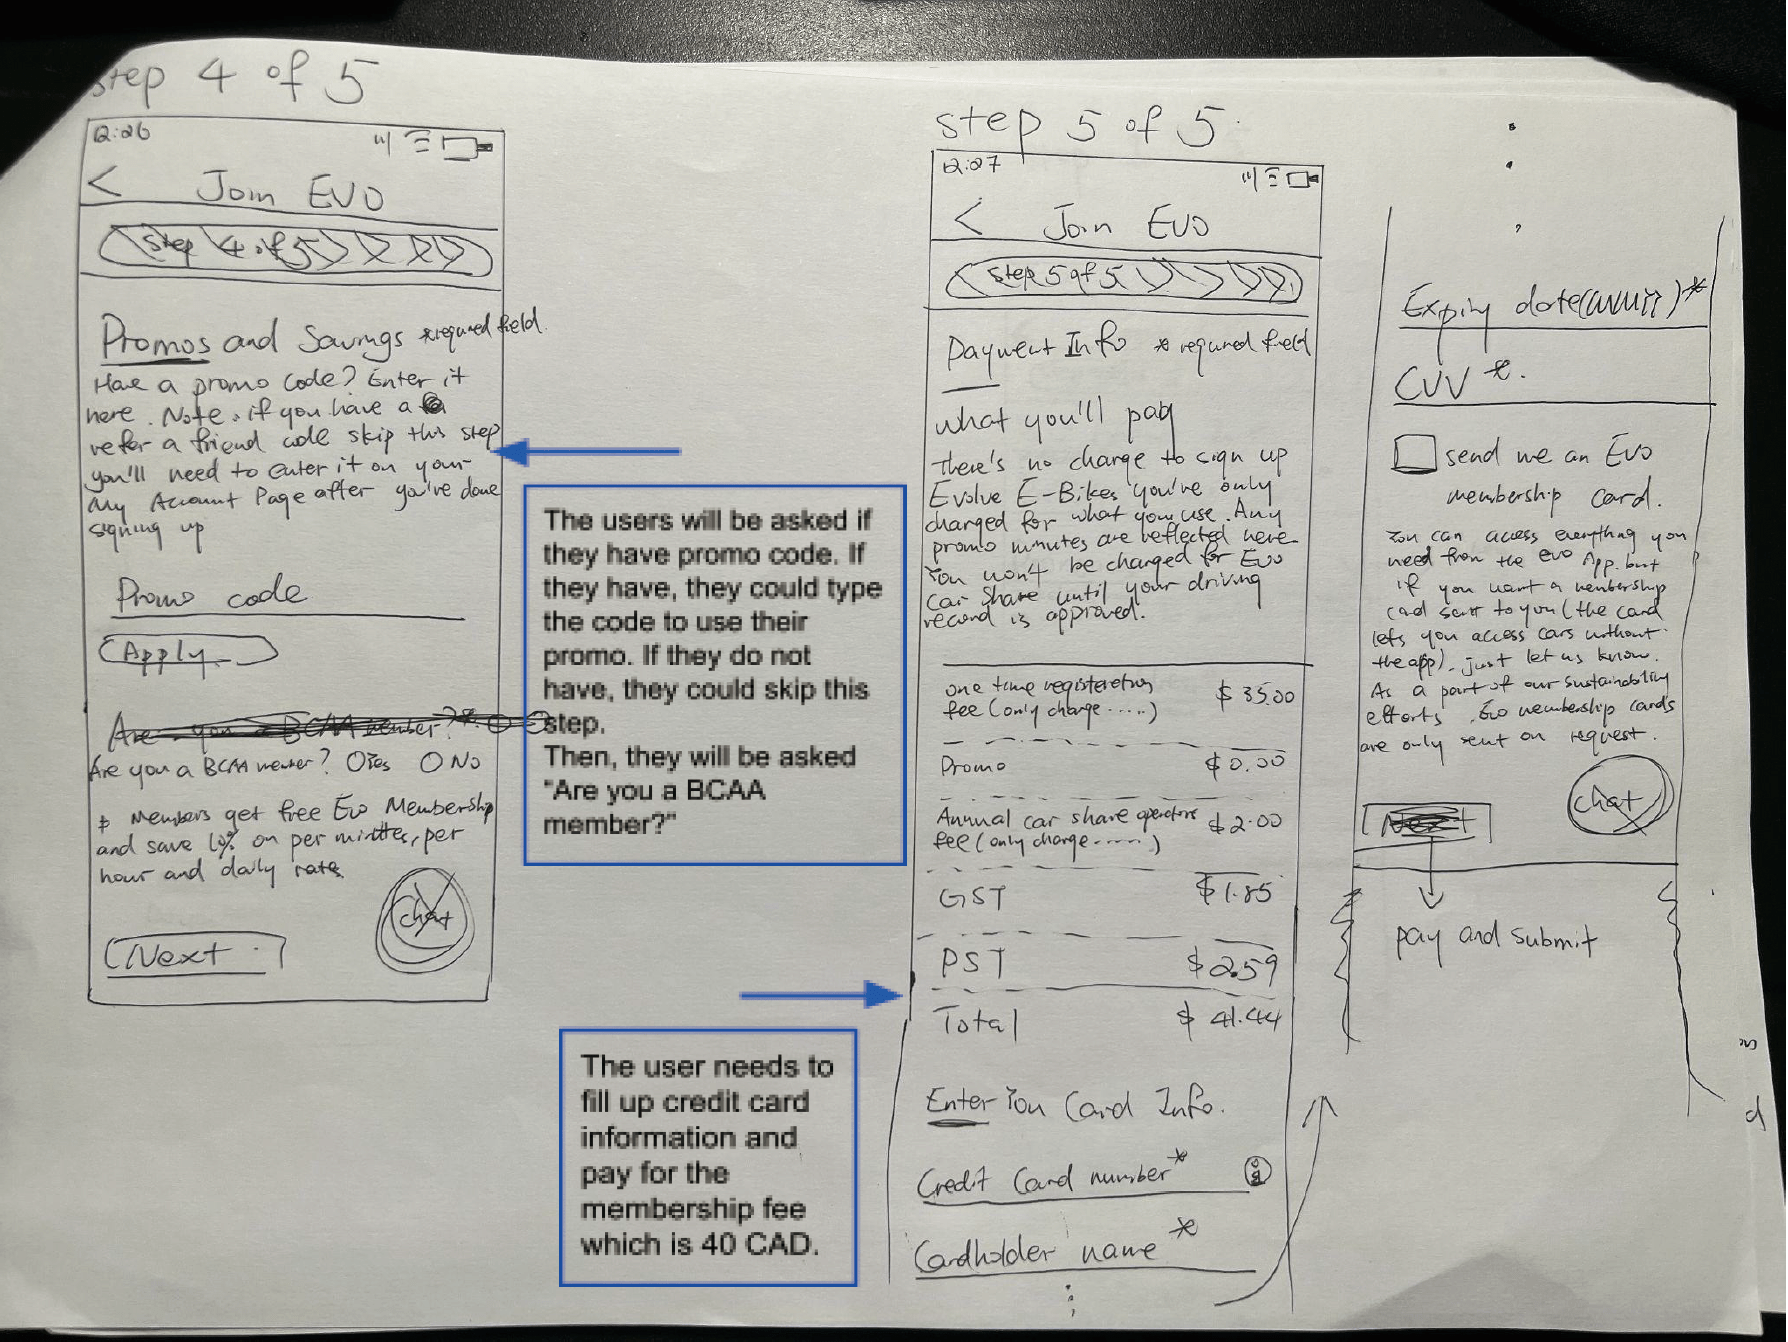 step 4 of 5
12:26
< Join EVO
step 4 of 5
Promos and Savings *required field.
Have a promo code? Enter it
here. Note, if you have a
refer a friend code skip this step
you'll need to enter it on your
My Account Page after you've done
signing up
Promo code
Apply
Are you a BCAA member?*
Are you a BCAA member? Yes No
* Members get free Evo Membership
and save 10% on per minutes, per
hour and daily rate.
chat
Next
The users will be asked if
they have promo code. If
they have, they could type
the code to use their
promo. If they do not
have, they could skip this
step.
Then, they will be asked
"Are you a BCAA
member?"
The user needs to
fill up credit card
information and
pay for the
membership fee
which is 40 CAD.
step 5 of 5
12:27
< Join EVO
step 5 of 5
Payment Info * required field
what you'll pay
There's no charge to sign up
Evolve E-Bikes you're only
charged for what you use. Any
promo minutes are reflected here
You won't be charged for Evo
car share until your driving
record is approved.
one time registeration $35.00
fee (only charge ......)
Promo $0.00
Annual car share operators $2.00
fee (only charge ......)
GST $1.85
PST $2.59
Total $41.44
Enter You Card Info.
Credit Card number*
Cardholder name *
Expiry date *
CVV *.
send me an Evo
membership card.
You can access everything you
need from the evo App. but
if you want a membership
card sent to you (the card
lets you access cars without
the app). just let us know.
As a part of our sustainability
efforts. Evo membership cards
are only sent on request.
chat
Next
pay and submit